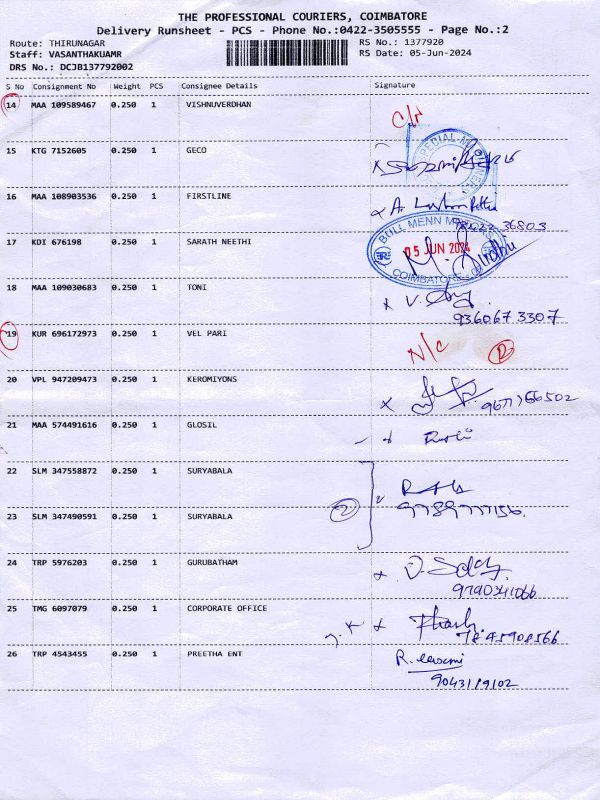 THE PROFESSIONAL COURIERS, COIMBATORE
Delivery Runsheet - PCS - Phone No.:0422-3505555 - Page No.:2
Route: THIRUNAGAR
Staff: VASANTHAKUAMR
DRS No.: DCJB137792002
RS No.: 1377920
RS Date: 05-Jun-2024
S No Consignment No Weight PCS Consignee Details Signature
14 MAA 109589467 0.250 1 VISHNUVERDHAN
15 KTG 7152605 0.250 1 GECO
16 MAA 108903536 0.250 1 FIRSTLINE A.
98422 36803
17 KDI 676198 0.250 1 SARATH NEETHI BULL MENN
05 JUN 2024
COIMBATORE
18 MAA 109030683 0.250 1 TONI
9360673307
19 KUR 696172973 0.250 1 VEL PARI N/C
20 VPL 947209473 0.250 1 KEROMIYONS
21 MAA 574491616 0.250 1 GLOSIL
22 SLM 347558872 0.250 1 SURYABALA
2
23 SLM 347490591 0.250 1 SURYABALA
24 TRP 5976203 0.250 1 GURUBATHAM
25 TMG 6097079 0.250 1 CORPORATE OFFICE
26 TRP 4543455 0.250 1 PREETHA ENT